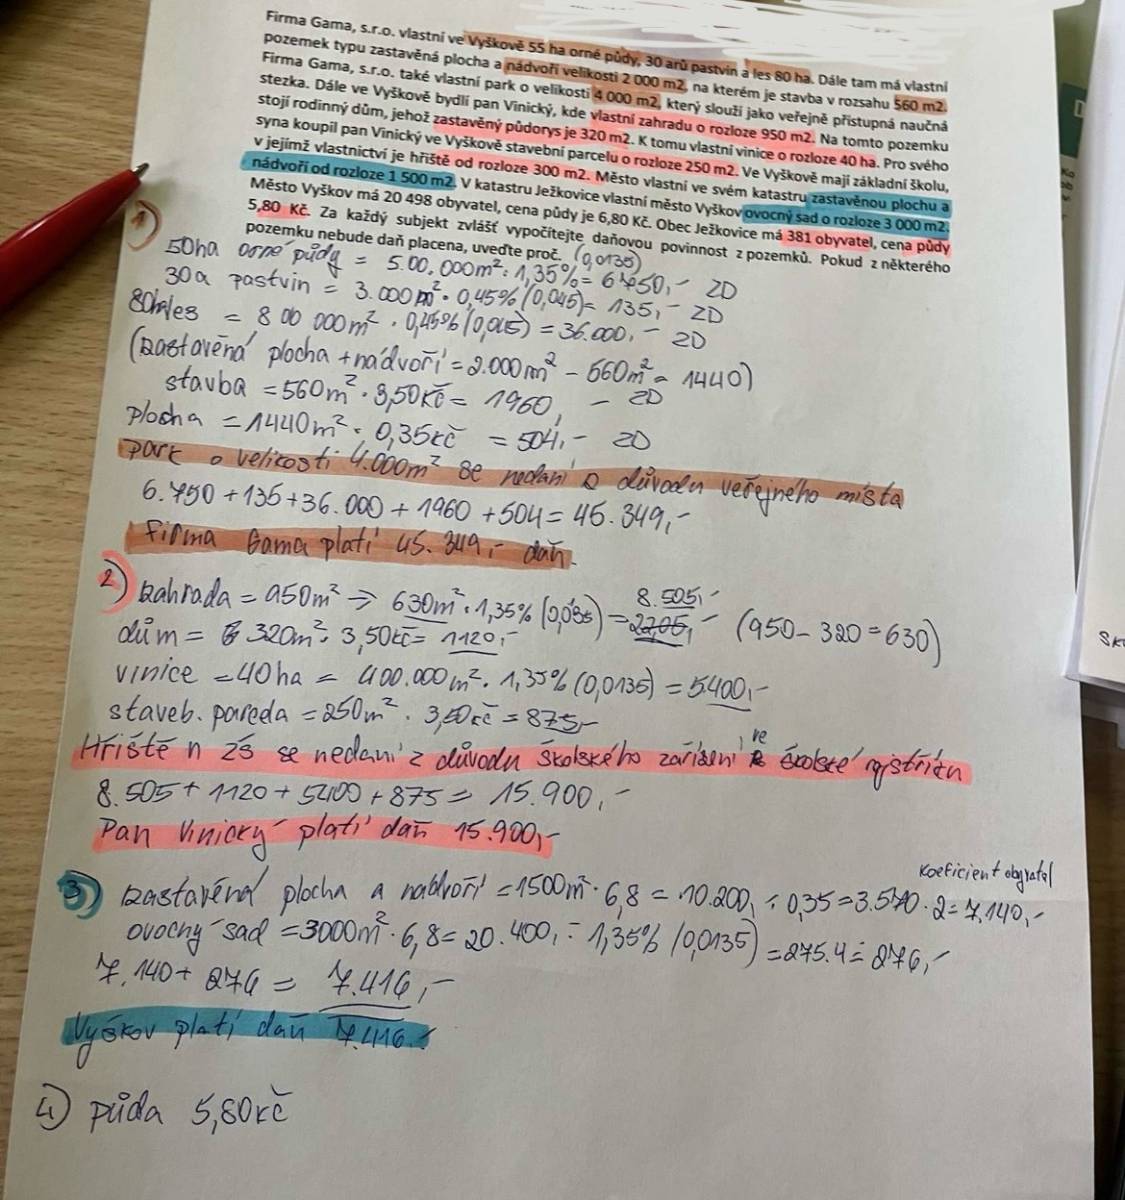 Firma Gama, s.r.o. vlastní ve Vyškově 55 ha orné půdy, 30 arů pastvin a les 80 ha. Dále tam má vlastní
pozemek typu zastavěná plocha a nádvoří velikosti 2 000 m2, na kterém je stavba v rozsahu 560 m2.
Firma Gama, s.r.o. také vlastní park o velikosti 4 000 m2, který slouží jako veřejně přístupná naučná
stezka. Dále ve Vyškově bydlí pan Vinický, kde vlastní zahradu o rozloze 950 m2. Na tomto pozemku
stojí rodinný dům, jehož zastavěný půdorys je 320 m2. K tomu vlastní vinice o rozloze 40 ha. Pro svého
syna koupil pan Vinický ve Vyškově stavební parcelu o rozloze 250 m2. Ve Vyškově mají základní školu,
v jejímž vlastnictví je hřiště od rozloze 300 m2. Město vlastní ve svém katastru zastavěnou plochu a
nádvoří od rozloze 1 500 m2. V katastru Ježkovice vlastní město Vyškov ovocný sad o rozloze 3 000 m2.
Město Vyškov má 20 498 obyvatel, cena půdy je 6,80 Kč. Obec Ježkovice má 381 obyvatel, cena půdy
5,80 Kč. Za každý subjekt zvlášť vypočítejte daňovou povinnost z pozemků. Pokud z některého
pozemku nebude daň placena, uveďte proč. (0,0135)
1)
50ha orné půdy = 500.000m² · 1,35% = 6750,- ZD
30a pastvin = 3.000m² · 0,45% (0,045) = 135,- ZD
80ha les = 800 000m² · 0,45% (0,045) = 36.000,- ZD
(zastavěná plocha + nádvoří = 2.000m² - 560m² = 1440)
stavba = 560m² · 3,50Kč = 1960,- ZD
plocha = 1440m² · 0,35Kč = 504,- ZD
park o velikosti 4.000m² se nedaní z důvodu veřejného místa
6.750 + 135 + 36.000 + 1960 + 504 = 45.349,-
Firma Gama platí 45.349,- daň.
2) zahrada = 950m² => 630m² · 1,35% (0,035) = 8.505,- (950 - 320 = 630)
dům = 320m² · 3,50Kč = 1120,-
vinice = 40ha = 400.000m² · 1,35% (0,0135) = 5400,-
staveb. parcela = 250m² · 3,50Kč = 875,-
Hřiště n ZŠ se nedaní z důvodu školského zařízení, ve školské rejstříku
8.505 + 1120 + 5400 + 875 = 15.900,-
Pan Vinický platí daň 15.900,-
koeficient obyvatel
3) zastavěná plocha a nádvoří = 1500m² · 6,8 = 10.200,- · 0,35 = 3.570 · 2 = 7.140,-
ovocný sad = 3000m² · 6,8 = 20.400,- · 1,35% (0,0135) = 275.4 ≐ 276,-
7.140 + 276 = 7.416,-
Vyškov platí daň 7.416,-
4) půda 5,80Kč